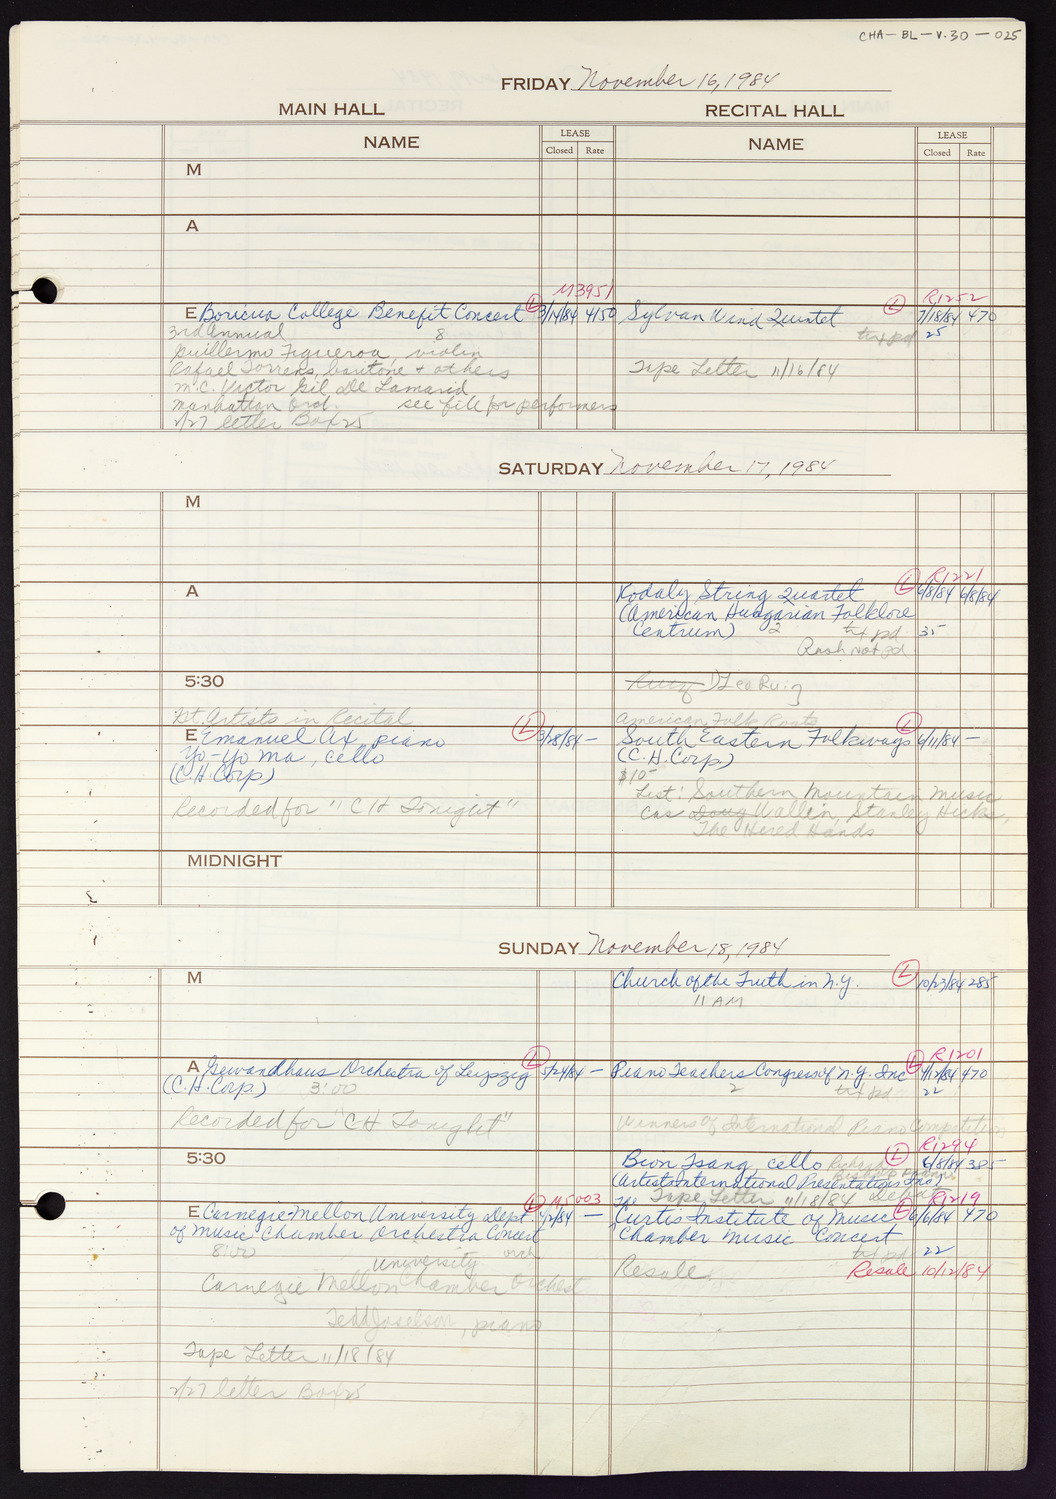 CHA-BL-V.30-025
FRIDAY November 16, 1984
MAIN HALL
RECITAL HALL
NAME LEASE Closed Rate
NAME LEASE Closed Rate
M
A
M3951
E Boricua College Benefit Concert L 3/14/84 4150
3rd Annual 8
Guillermo Figueroa, violin
Rafael Torrens, baritone + others
M.C. Victor Gil De Lamarid
Manhattan Orch. see file for performers
2/27 letter Box 25
R1252
Sylvan Wind Quintet L 7/18/84 470
txt pd 25
Tape Letter 11/16/84
SATURDAY November 17, 1984
M
A
R1221
Kodaly String Quartet L 6/8/84 6/8/84
(American Hungarian Folklore
Centrum) 2 txt pd 35
Rash not pd
5:30
D Leo Ruiz
Int. Artists in Recital
E Emanuel Ax, piano L 3/28/84 —
Yo-Yo Ma, cello
(C.H. Corp)
Recorded for "CH Tonight"
American Folk Roots
South Eastern Folkways L 6/11/84 —
(C.H. Corp)
$10-
List: Southern Mountain Music
Cas Doug Wallen, Stanley Hicks,
The Hired Hands
MIDNIGHT
SUNDAY November 18, 1984
M
Church of the Truth in N.Y. L 10/23/84 285
11 AM
A Gewandhaus Orchestra of Leipzig L 5/24/84 —
(C.H. Corp) 3:00
Recorded for "CH Tonight"
R1201
Piano Teachers Congress of N.Y. Inc L 4/12/84 470
2 txt pd 22
Winners of International Piano Competition
5:30
R1294
Bion Tsang, cello Richard Bishop, piano L 6/8/84 385
(Artists International Presentations Inc.)
Tape Letter 11/18/84 Debut
M5003
E Carnegie-Mellon University Dept. L 4/2/84 —
of Music Chamber Orchestra Concert
8:00
University orch
Carnegie Mellon Chamber Orchest
Tedd Joselson, piano
Tape Letter 11/18/84
2/27 letter Box 25
R1219
The Curtis Institute of Music L 6/6/84 470
Chamber Music Concert
txt pd 22
Resale Resale 10/12/84